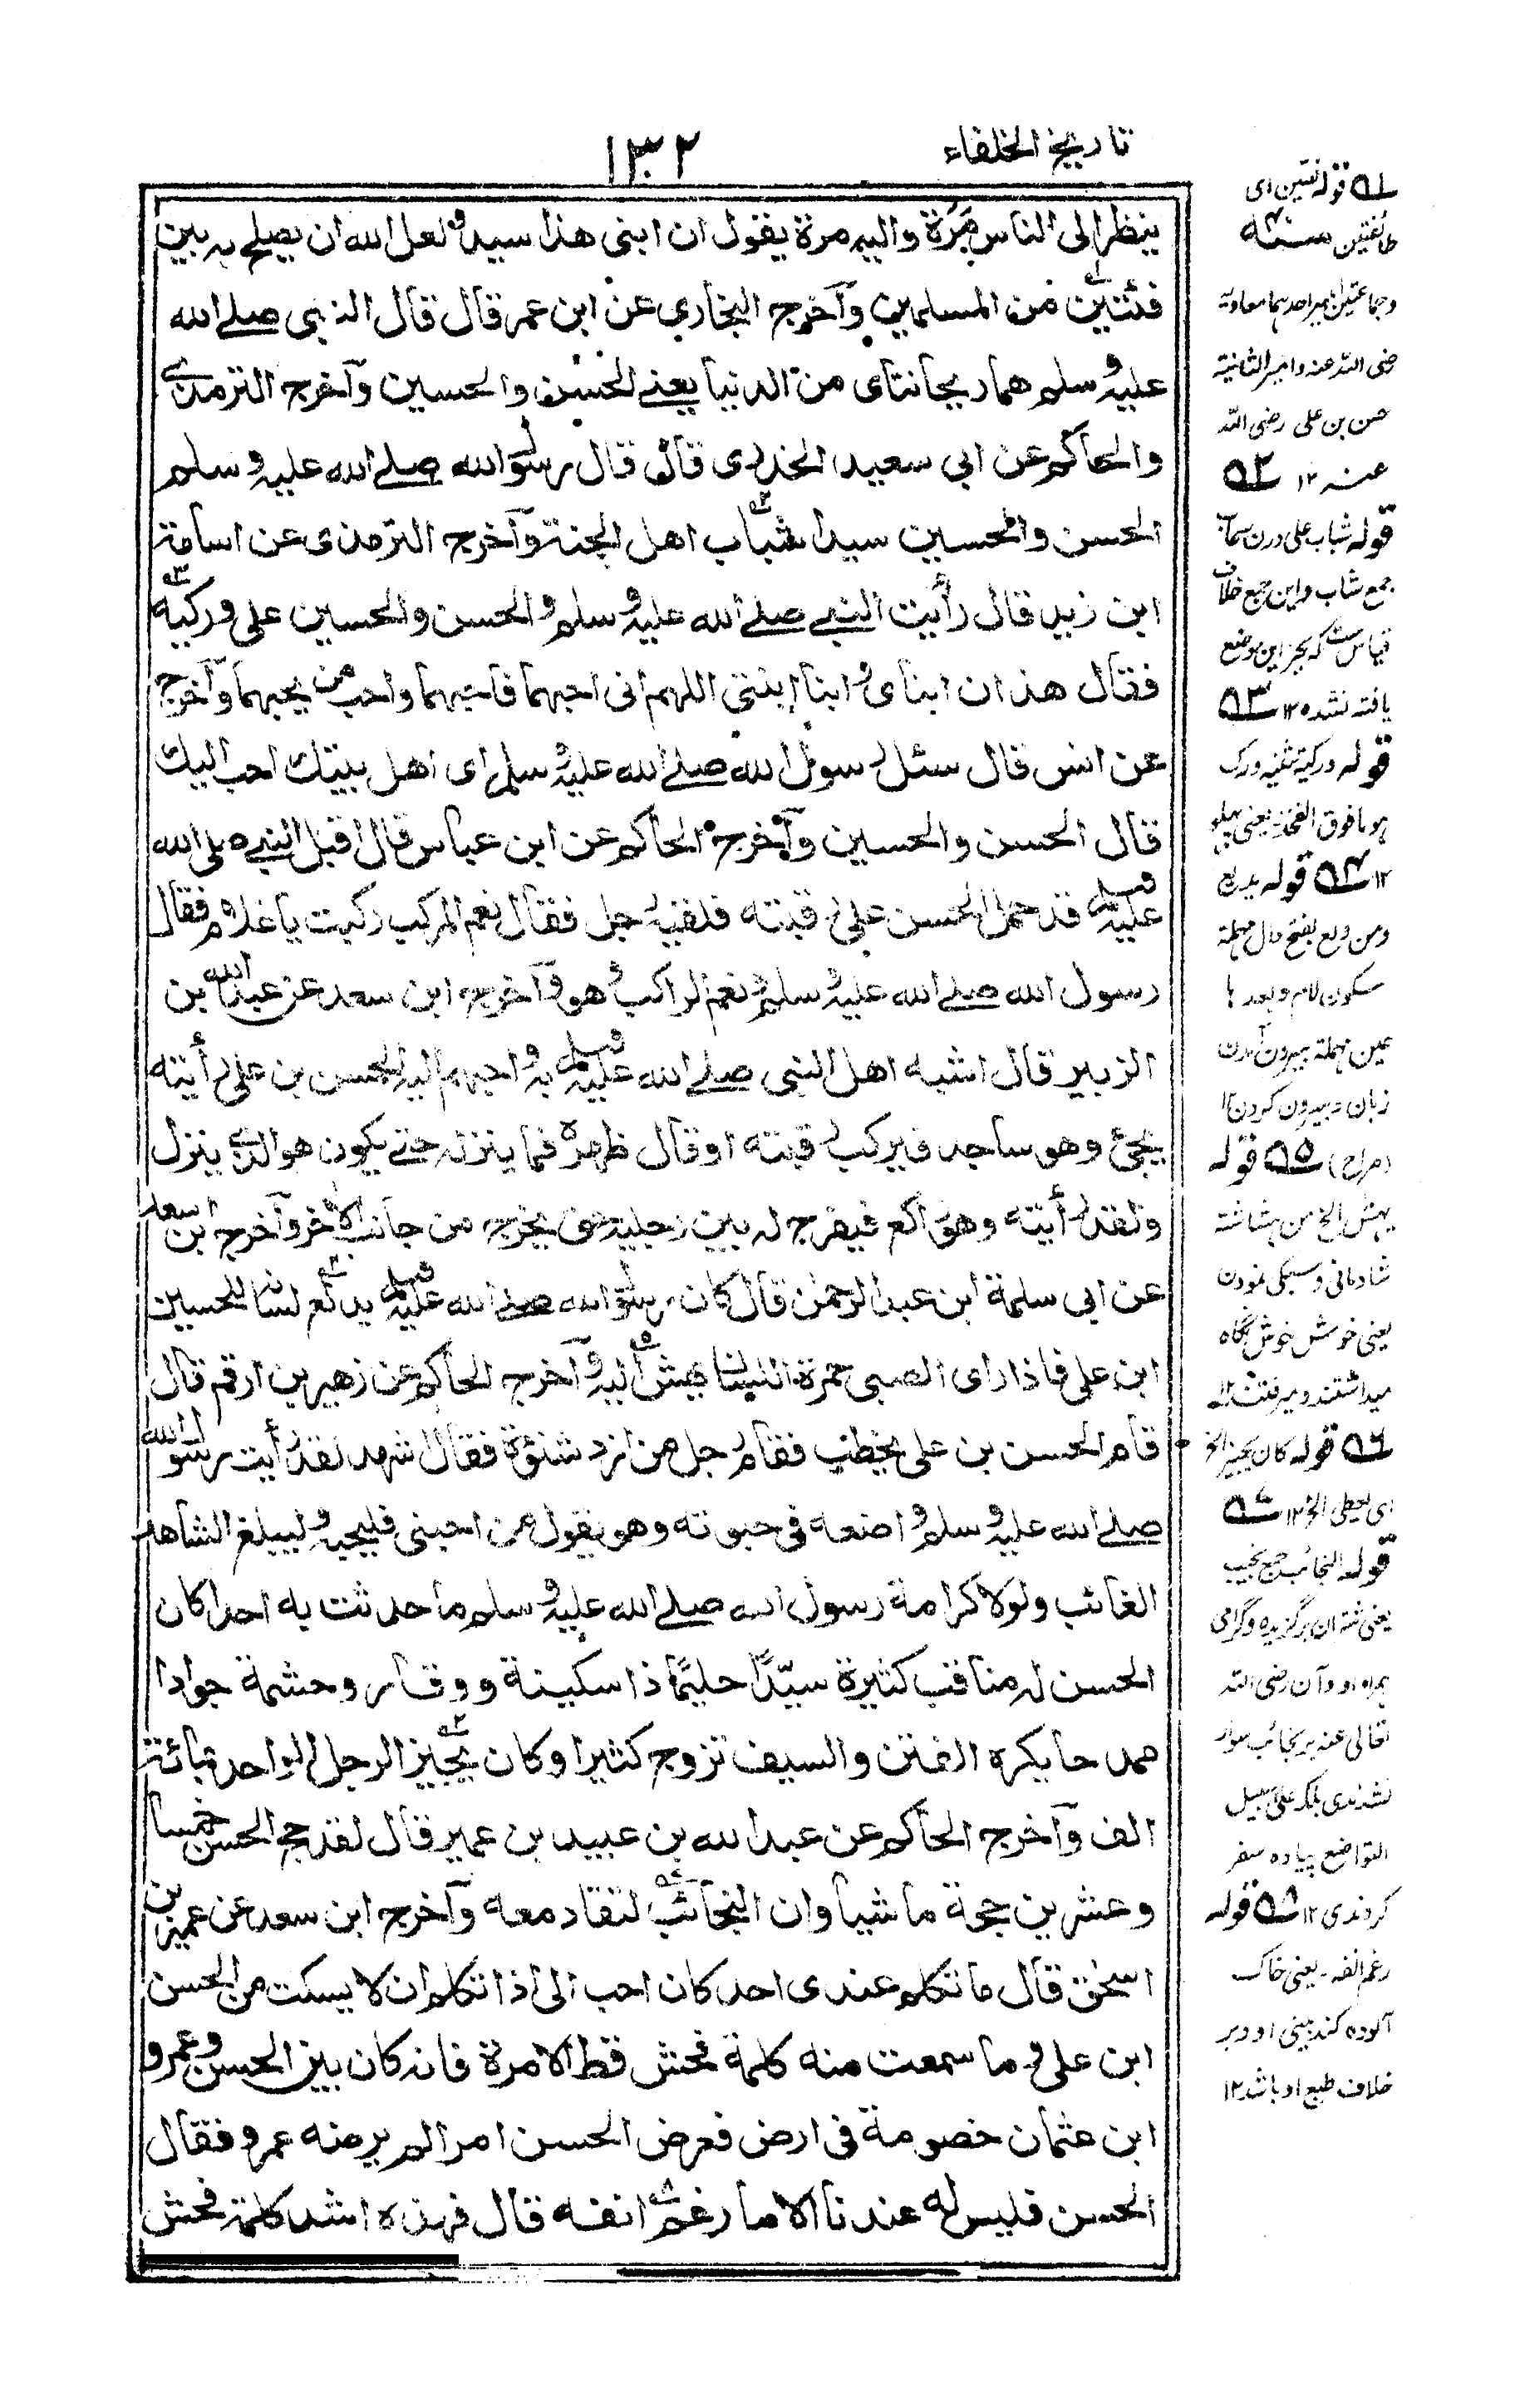 تاريخ الخلفاء
١٣٢
ينظر الى الناس مَرّة واليه مرة يقول ان ابنى هذا سيد ولعل الله ان يصلح به بين
فئتين من المسلمين وآخرج البخاري عن ابن عمر قال قال النبى صلے الله
عليه وسلم هما ريحانتاى من الدنيا يعنے الحسن والحسين وآخرج الترمذي
والحاكم عن ابى سعيد الخدرى قال قال رسول الله صلے الله عليه وسلم
الحسن والحسين سيدا شباب اهل الجنة وآخرج الترمذى عن اسامة
ابن زيد قال رأيت النبے صلے الله عليه وسلم والحسن والحسين على وركيه
فقال هذان ابناى وابنا ابنتى اللهم انى احبهما فاحبهما واحب من يحبهما وآخرج
عن انس قال سئل رسول الله صلے الله عليه وسلم اى اهل بيتك احب اليك
قال الحسن والحسين وآخرج الحاكم عن ابن عباس قال اقبل النبے صلى الله
عليه وسلم قد حمل الحسن على رقبته فلقيه رجل فقال نعم المركب ركبت يا غلام فقال
رسول الله صلے الله عليه وسلم ونعم الراكب هو وآخرج ابن سعد عن عبد الله بن
الزبير قال اشبه اهل النبى صلے الله عليه وسلم به واحبهم اليه الحسن بن على رأيته
يجئ وهو ساجد فيركب رقبته او قال ظهره فما ينزله حتے يكون هو الذي ينزل
ولقد رأيته وهو راكع فيفرج له بين رجليه حتى يخرج من جانب الآخر وآخرج ابن سعد
عن ابى سلمة ابن عبد الرحمٰن قال كان رسول الله صلے الله عليه وسلم يدلع لسانه للحسين
ابن على فاذا راى الصبى حمرة اللسان يهش اليه وآخرج الحاكم عن زهير بن ارقم قال
قام الحسن بن على يخطب فقام رجل من ازد شنئوة فقال اشهد لقد رأيت رسول الله
صلے الله عليه وسلم واضعه فى حبوته وهو يقول من احبنى فليحبه وليبلغ الشاهد
الغائب ولولا كرامة رسول الله صلے الله عليه وسلم ما حدثت به احدا كان
الحسن له مناقب كثيرة سيّدًا حليمًا ذا سكينة ووقار وحشمة جوادا
ممدحا يكره الفتن والسيف تزوج كثيرا وكان يجيز الرجل الواحد بمائة
الف وآخرج الحاكم عن عبد الله بن عبيد بن عمير قال لقد حج الحسن خمسا
وعشرين حجة ماشيا وان النجائب لتقاد معه وآخرج ابن سعد عن عمير بن
اسحٰق قال ما تكلم عندى احد كان احب الى اذا تكلم ان لا يسكت من الحسن
ابن على وما سمعت منه كلمة فحش قط الا مرة فانه كان بين الحسن وعمرو
ابن عثمان خصومة فى ارض فعرض الحسن امرا لم يرضه عمرو فقال
الحسن فليس له عندنا الا ما رغم انفه قال فهذه اشد كلمة فحش
ے١ قوله فئتين اى
طائفتين
وجماعتين امير احدهما معاوية
رضى الله عنه وامير الثانية
حسن بن على رضى الله
عنه ١٢ ے٢
قوله شباب على وزن سحاب
جمع شاب واين جمع خلاف
قياس ست كه بجز اين موضع
يافته نشده ١٢ ے٣
قوله وركيه تثنيه ورك
هو ما فوق الفخذ يعنى پهلو
١٢ ے٤ قوله يدلع
ومن دلع بفتح دال مهملة
سكون لام وبعدها
عين مهملة بيرون آمدن
زبان وبيرون كردن ١٢
(صراح) ے٥ قوله
يهش الخ من هشاشته
شادمانى وسبكى نمودن
يعنى خوش خوش نگاه
ميداشتند وميرفتند ١٢
ے٦ قوله كان يجيز الخ
اى يعطى الخ ١٢ ے٧
قوله النجائب جمع نجيب
يعنى شتران برگزيده وگرامى
همراه او وآن رضى الله
تعالى عنه بر نجائب سوار
نشدندى بلكه على سبيل
التواضع پياده سفر
كردندى ١٢ ے٨ قوله
رغم انفه يعنى خاك
آلوده كند بينى او وبر
خلاف طبع او باشد ١٢